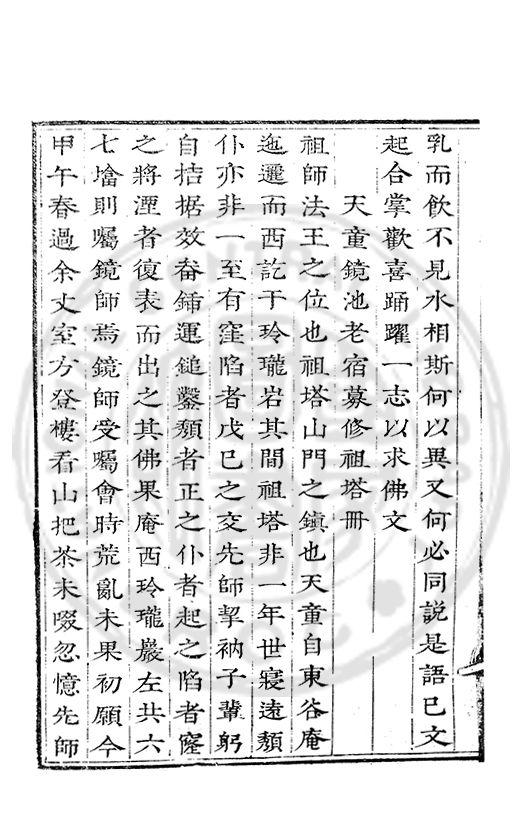 乳而飲不見水相斯何以異又何必同說是語已文
起合掌歡喜踊躍一志以求佛文
天童鏡池老宿募修祖塔冊
祖師法王之位也祖塔山門之鎮也天童自東谷庵
迤邐而西訖于玲瓏岩其間祖塔非一年世寢遠頹
仆亦非一至有窪陷者戊巳之交先師挈衲子輩躬
自拮据效畚鍤運鎚鑿頹者正之仆者起之陷者窿
之將湮者復表而出之其佛果庵西玲瓏巖左共六
七墖則囑鏡師焉鏡師受囑會時荒亂未果初願今
甲午春過余丈室方登樓看山把茶未啜忽憶先師